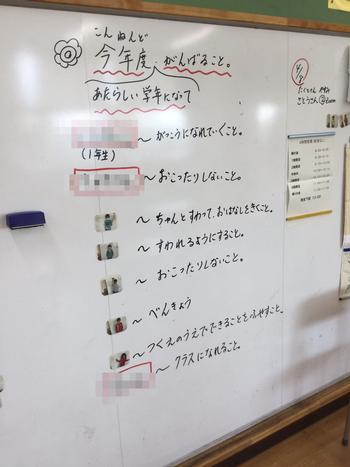 こんねんど
今年度 がんばること。
あたらしい学年になって
～がっこうになれていくこと。
(1年生)
～おこったりしないこと。
～ちゃんとすわって、おはなしをきくこと。
～すわれるようにすること。
～おこったりしないこと。
～べんきょう
～つくえのうえでできることをふやすこと。
～クラスになれること。
4/8